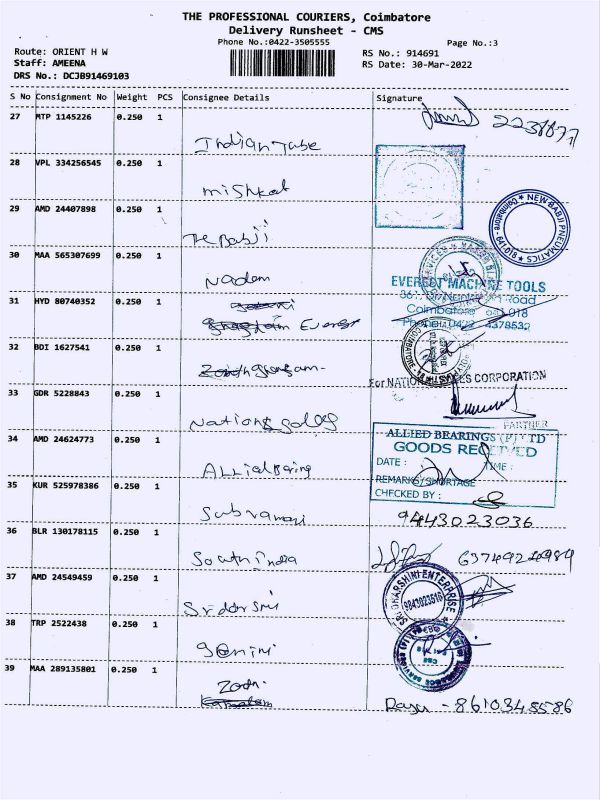 THE PROFESSIONAL COURIERS, Coimbatore
Delivery Runsheet - CMS
Phone No.:0422-3505555
Page No.:3
Route: ORIENT H W
RS No.: 914691
Staff: AMEENA
RS Date: 30-Mar-2022
DRS No.: DCJB91469103
S No Consignment No Weight PCS Consignee Details Signature
27 MTP 1145226 0.250 1
2238877
Indian Tube
28 VPL 334256545 0.250 1
Mishkat
29 AMD 24407898 0.250 1
NEW BABJI PNEUMATICS
Coimbatore - 641 018
The Babji
30 MAA 565307699 0.250 1
Nadem
EVEREST MACHINE TOOLS
31 HYD 80740352 0.250 1
Road
Coimbatore 641 018
Everest
Phone: 0422 4378532
32 BDI 1627541 0.250 1
For NATIONAL SALES CORPORATION
33 GDR 5228843 0.250 1
National Sales
PARTNER
34 AMD 24624773 0.250 1
ALLIED BEARINGS (P) LTD
GOODS RECEIVED
DATE : TIME :
Allied Bearing
REMARKS/SHORTAGE
35 KUR 525978386 0.250 1
CHECKED BY :
Subramani
9443023036
36 BLR 130178115 0.250 1
South india
6374924989
37 AMD 24549459 0.250 1
SRI DHARSHINI ENTERPRISE
9843023516
38 TRP 2522438 0.250 1
Gemini
39 MAA 289135801 0.250 1
Raju - 8610345586